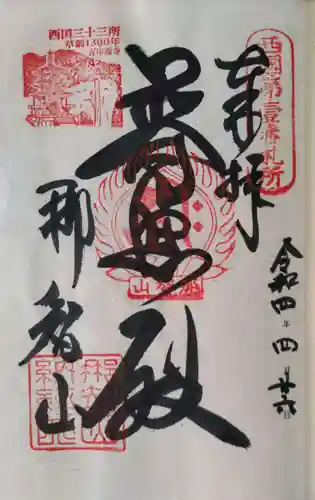 西国第壹番札所
奉拝
令和四年四月廿六日
普照殿
西国三十三所
草創1300年
那智山